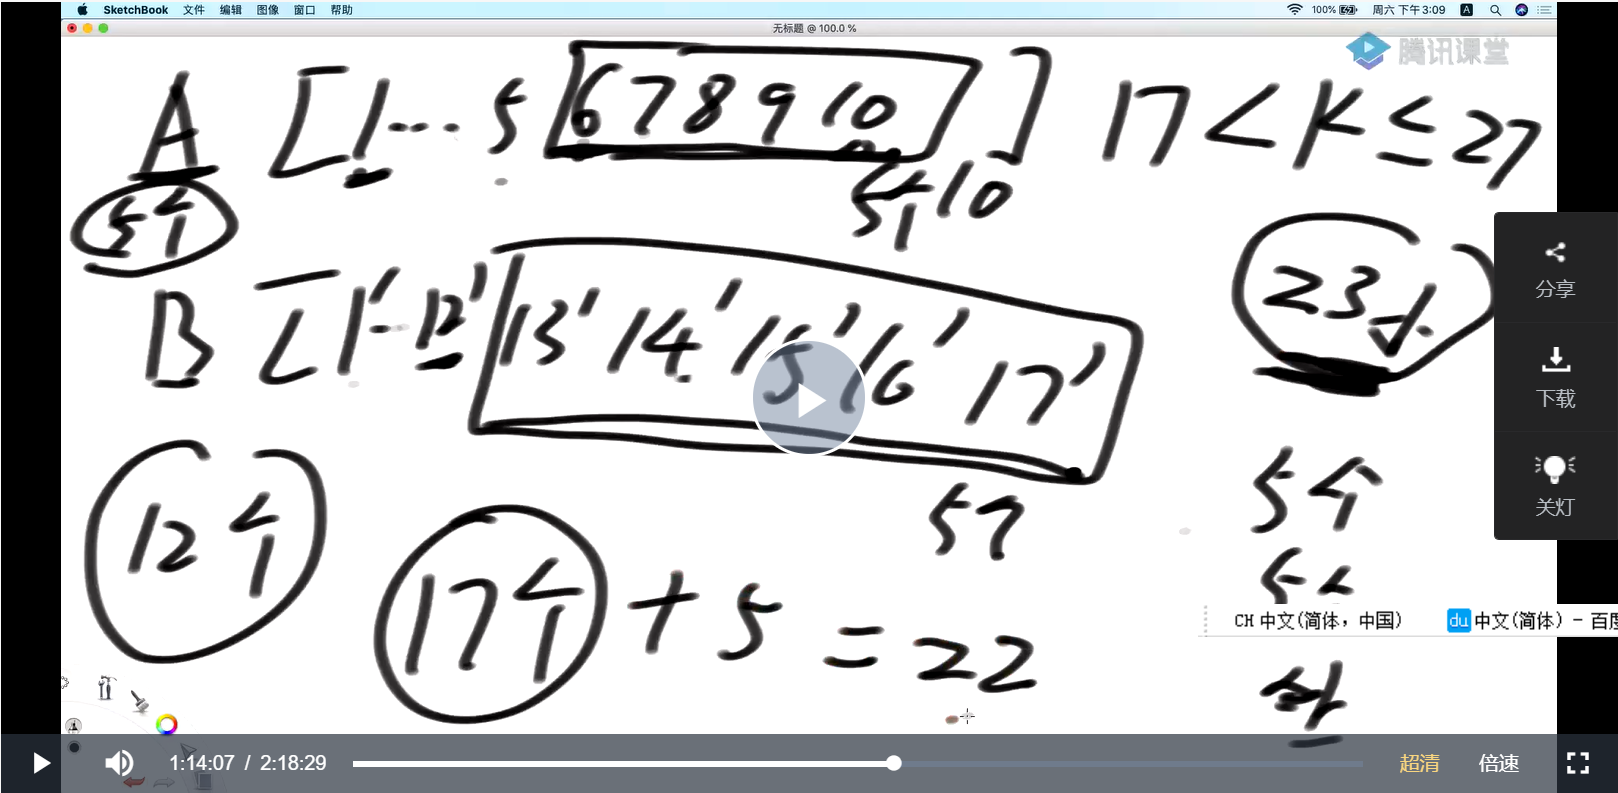 SketchBook 文件 编辑 图像 窗口 帮助 100% 周六 下午3:09 A
无标题 @ 100.0 %
腾讯课堂
A [1... 5 6 7 8 9 10] 17 < K ≤ 27
5个 5个 10
B [1'... 12' 13' 14' 15' 16' 17' 23小
12个 57 5个
17个 + 5 = 22
分享
下载
关灯
CH 中文(简体，中国) du 中文(简体) - 百度
1:14:07 / 2:18:29 超清 倍速